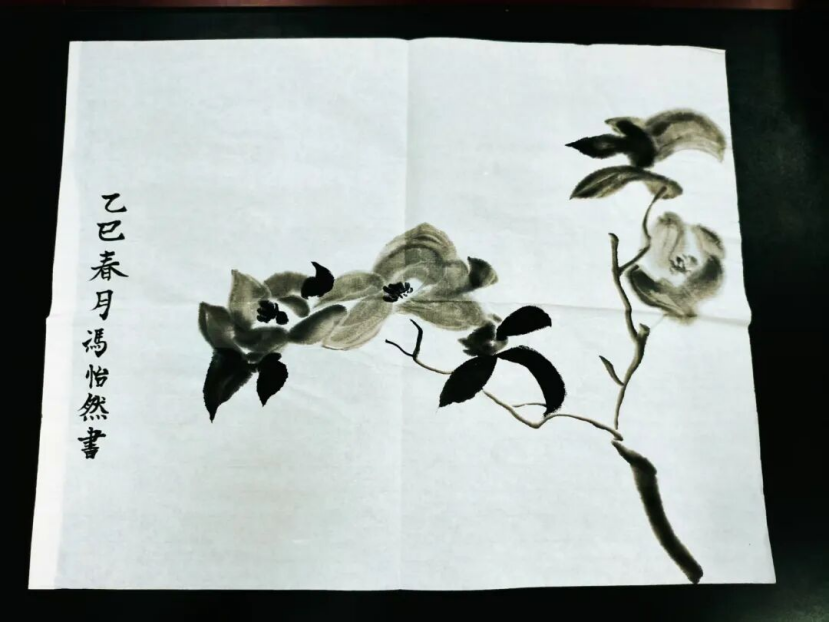 乙巳春月馮怡然書